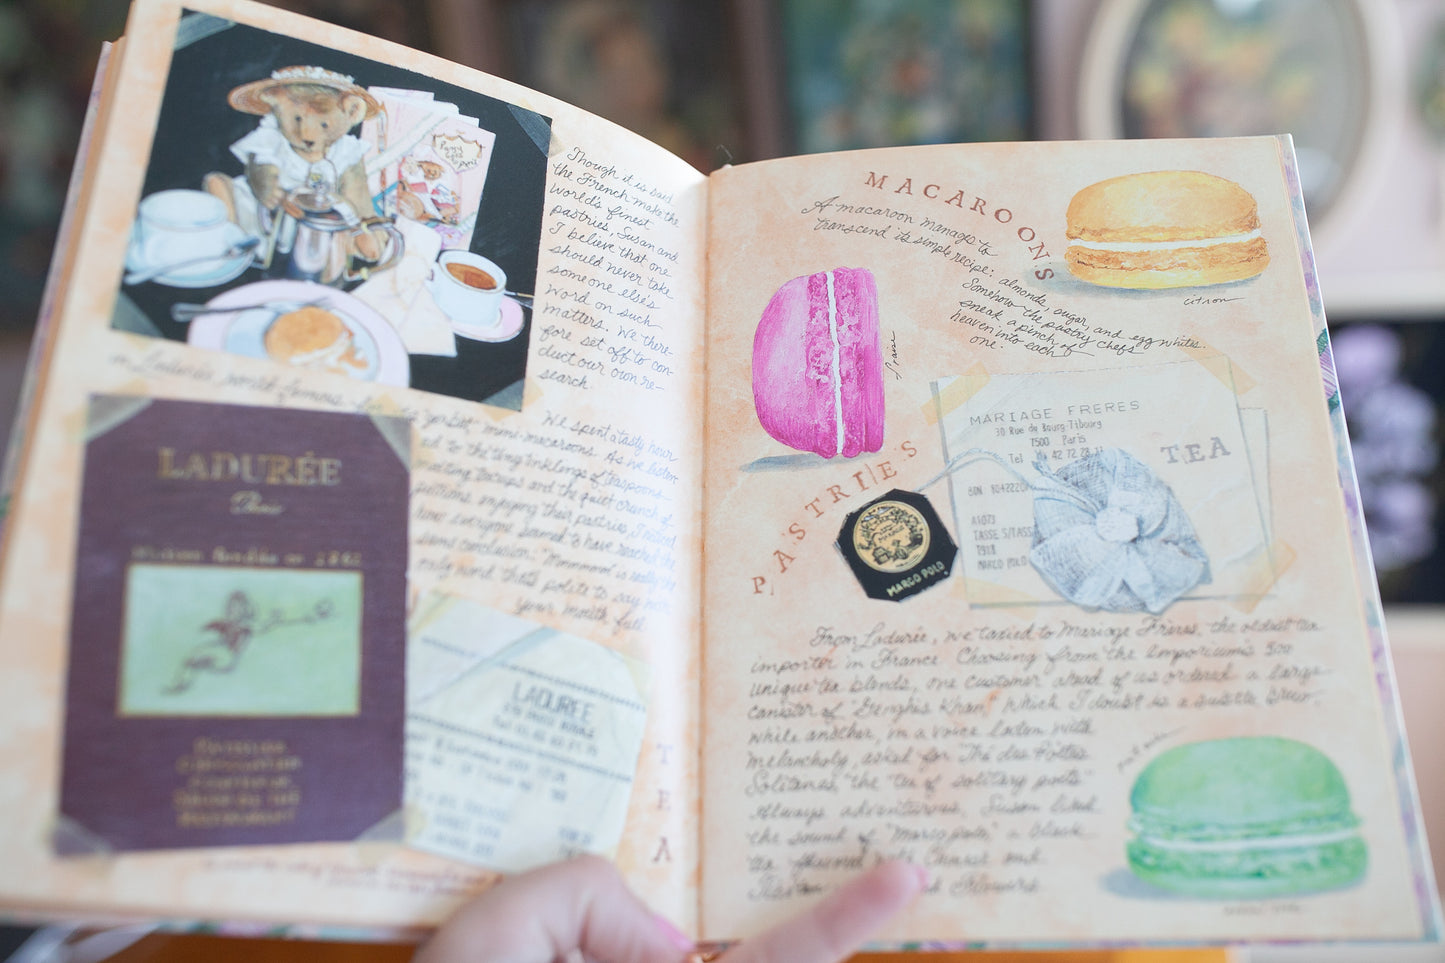 Though it is said
the French make the
world's finest
pastries, Susan and
I believe that one
should never take
someone else's
word on such
matters. We there-
fore set off to con-
duct our own re-
search.
We spent a tasty hour
in Ladurée's world-famous
mini-macaroons. As we listen-
ed to the tiny tinklings of teaspoons
and the quiet crunch of
enjoying their pastries, I noticed
how everyone seemed to have reached the
same conclusion. "Mmmmm" is really the
only word that's polite to say with
your mouth full.
LADURÉE
Paris
LADUREE
TEA
MACAROONS
A macaroon manages to
transcend its simple recipe: almonds, sugar, and egg whites.
Somehow the pastry chefs
sneak a pinch of
heaven into each
one.
citron
PASTRIES
MARIAGE FRERES
30 Rue du Bourg-Tibourg
7500 Paris
Tel 42 72 28
A1073
TASSE S/TASS
MARCO POLO
TEA
MARCO POLO
From Ladurée, we taxied to Mariage Frères, the oldest tea
importer in France. Choosing from the emporium's 500
unique tea blends, one customer ahead of us ordered a large
canister of "Genghis Khan," which I doubt is a subtle brew,
while another, in a voice laden with
melancholy, asked for "Thé des Poètes
Solitaires," the "tea of solitary poets."
Always adventurous, Susan liked
the sound of "Marco Polo," a black
tea flavored with Chinese and
Flowers.